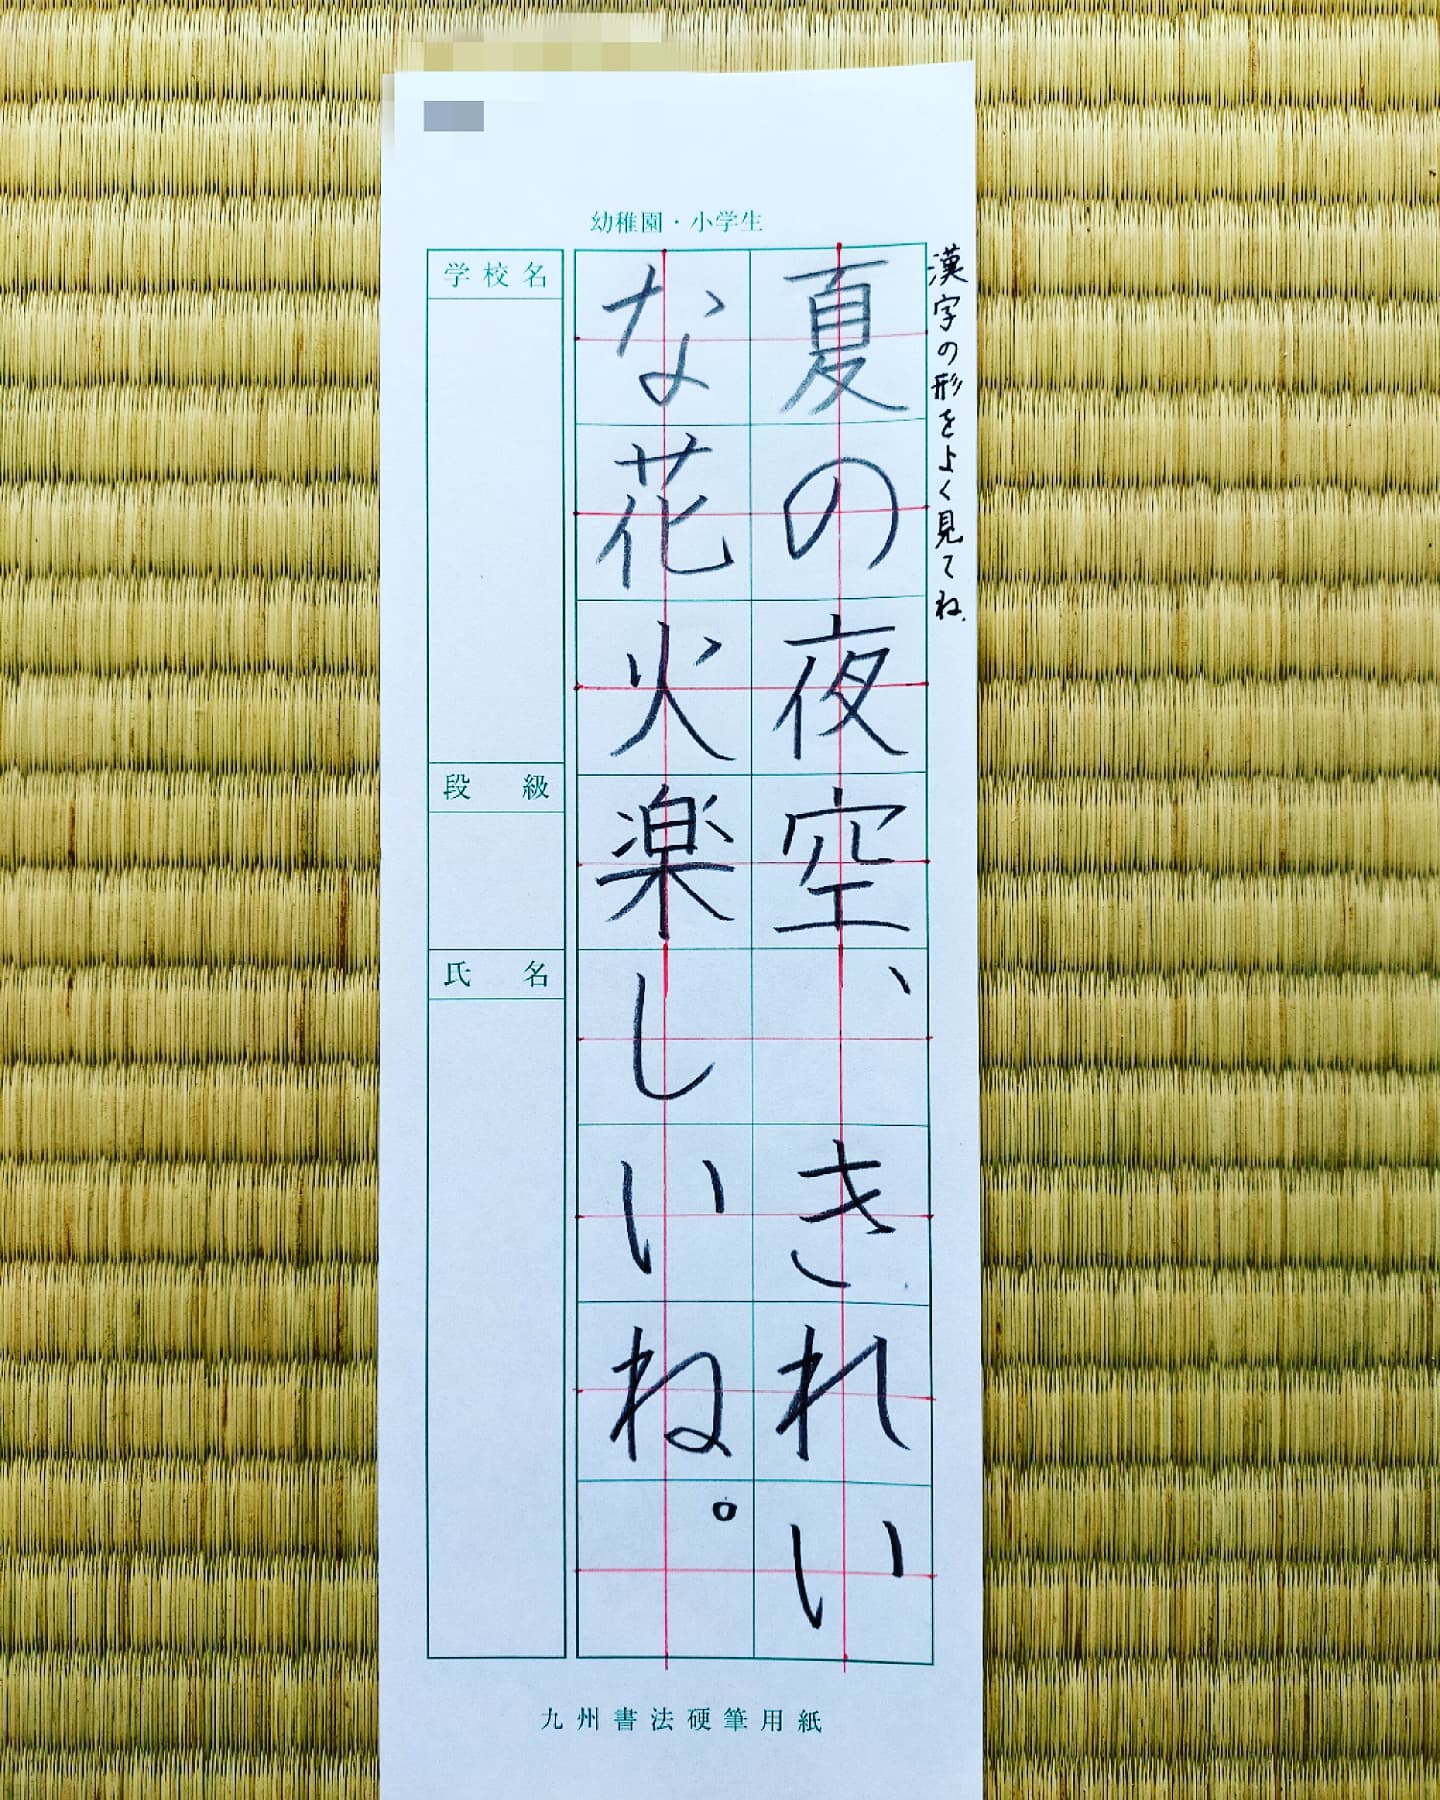 幼稚園・小学生
漢字の形をよく見てね.
夏の夜空、きれい
な花火楽しいね。
学校名
段級
氏名
九州書法硬筆用紙